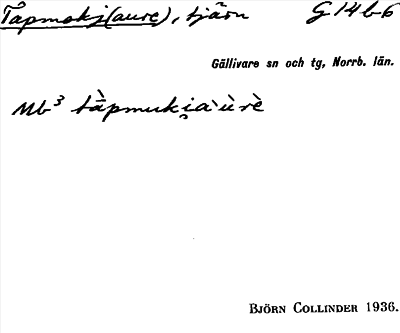 Tåpmokj(aure), tjärn G 14 b 6
Gällivare sn och tg, Norrb. län.
Mb³ tàpmuki̯a`ùrè
BJÖRN COLLINDER 1936.